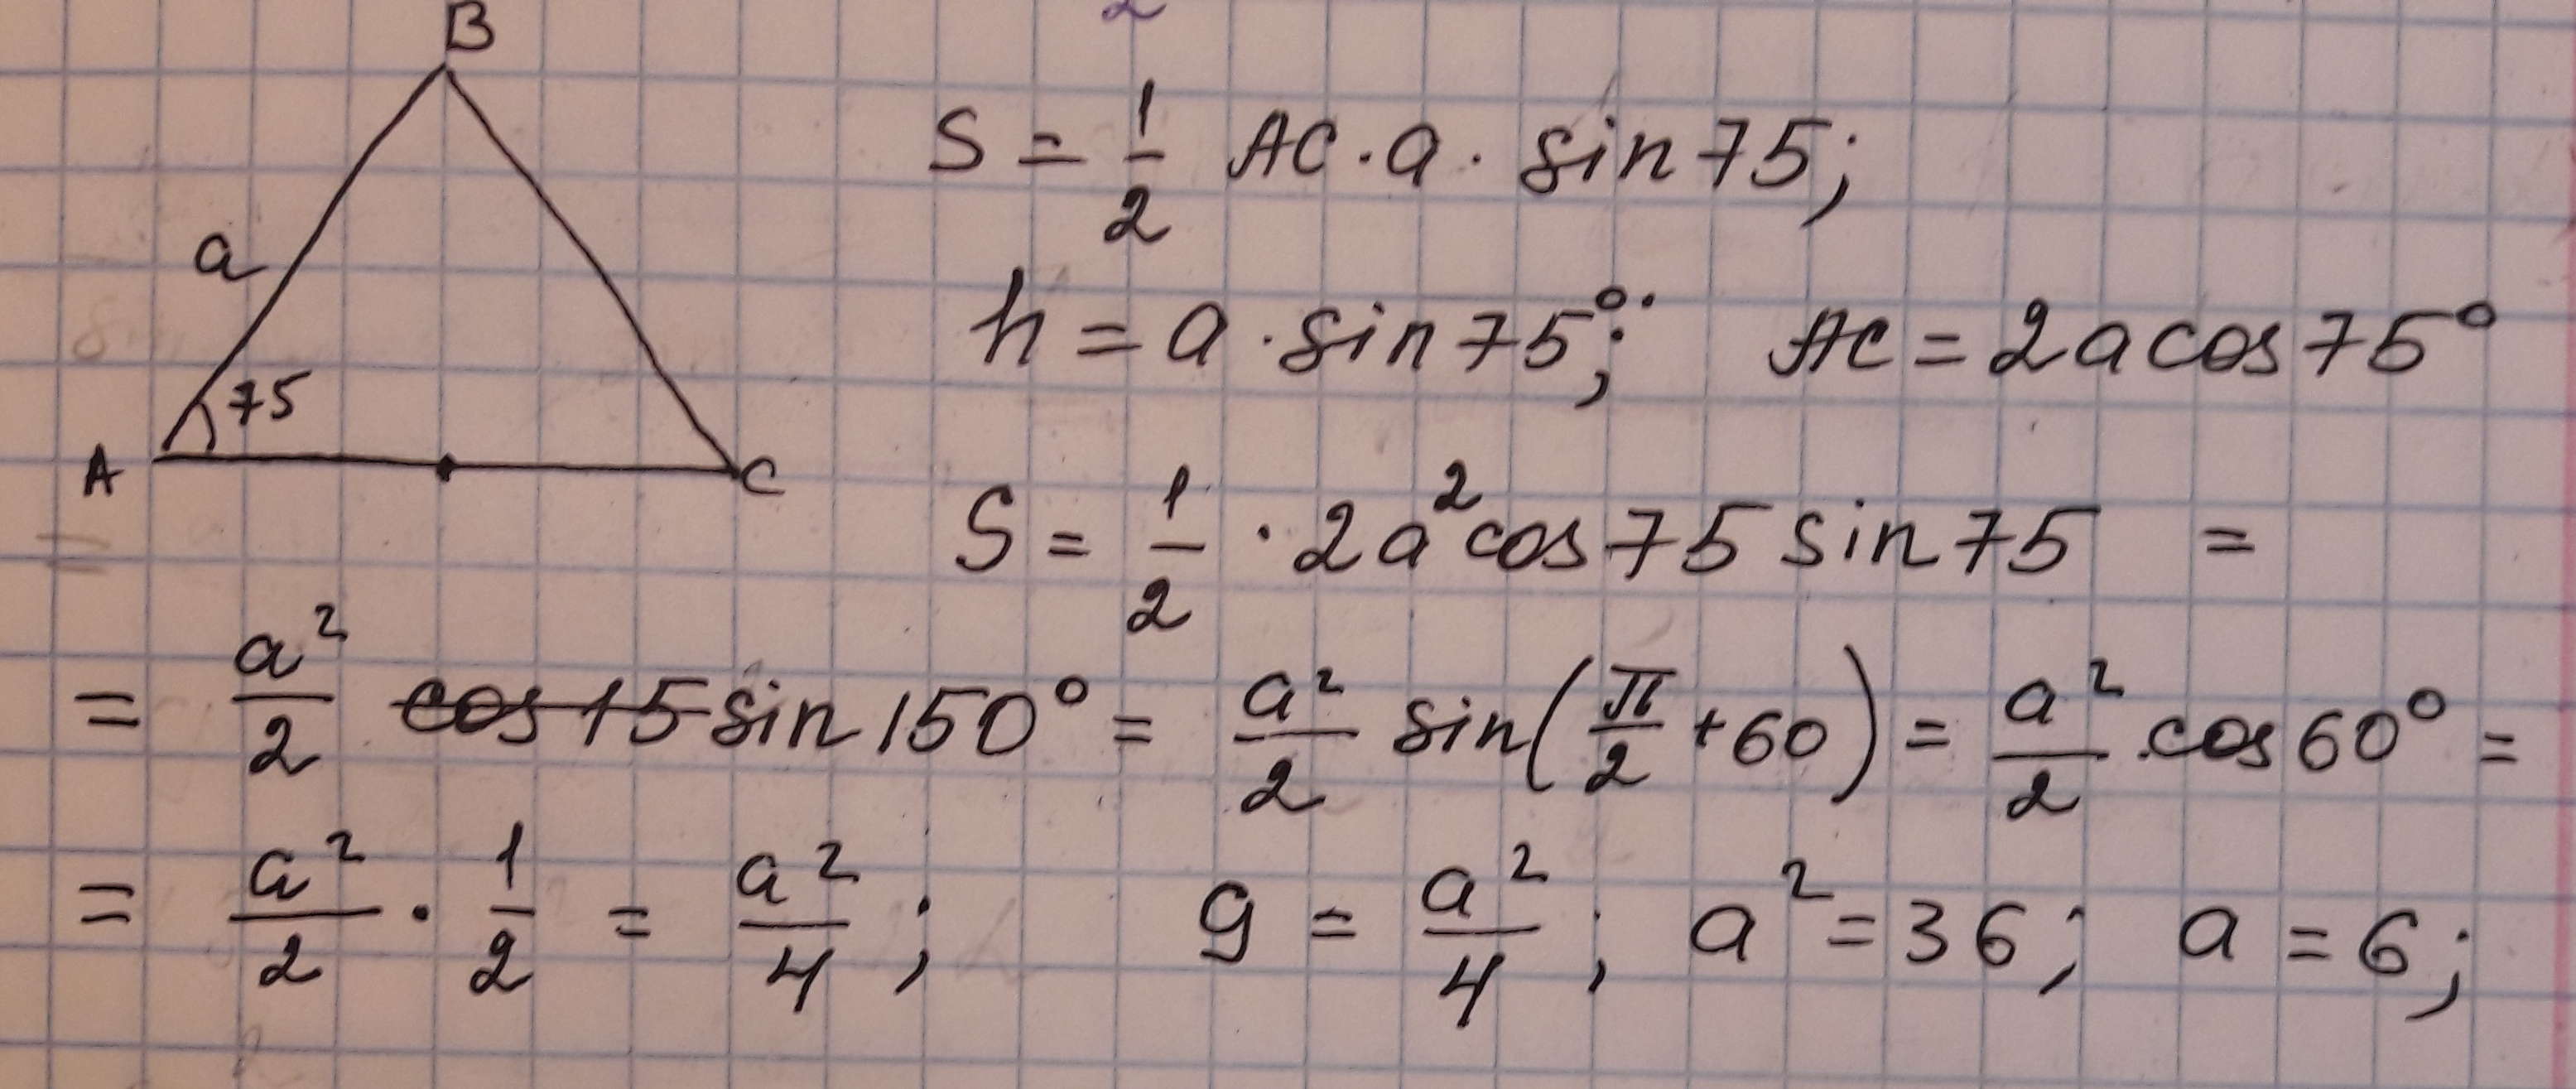 B
a
75
A
C
S = 1/2 AC · a · sin 75;
h = a · sin 75°; AC = 2a cos 75°
S = 1/2 · 2a² cos 75 sin 75 =
= a²/2 ~~cos 15~~ sin 150° = a²/2 sin(π/2 + 60) = a²/2 · cos 60° =
= a²/2 · 1/2 = a²/4; 9 = a²/4; a² = 36; a = 6;